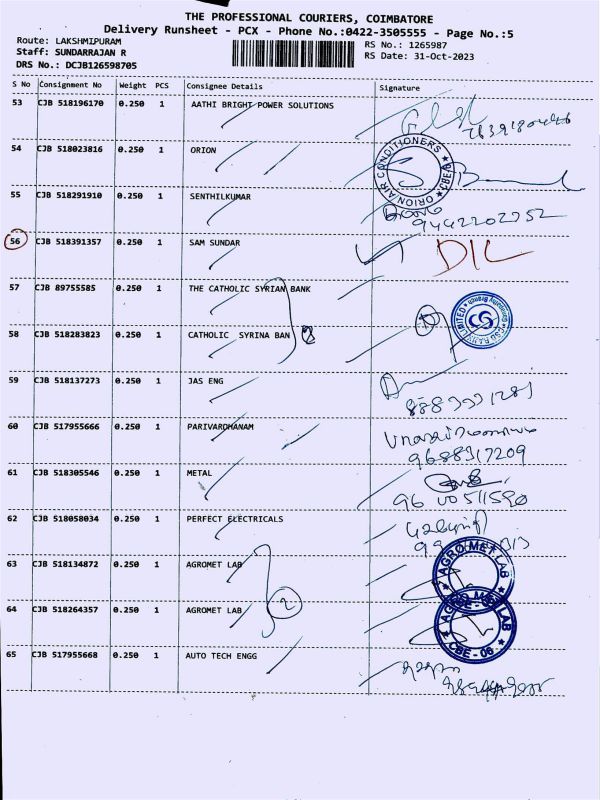 THE PROFESSIONAL COURIERS, COIMBATORE
Delivery Runsheet - PCX - Phone No.:0422-3505555 - Page No.:5
Route: LAKSHMIPURAM
RS No.: 1265987
Staff: SUNDARRAJAN R
RS Date: 31-Oct-2023
DRS No.: DCJB126598705
S No Consignment No Weight PCS Consignee Details Signature
53 CJB 518196170 0.250 1 AATHI BRIGHT POWER SOLUTIONS
54 CJB 518023816 0.250 1 ORION
ORION AIR CONDITIONERS
55 CJB 518291910 0.250 1 SENTHILKUMAR
9442202752
56 CJB 518391357 0.250 1 SAM SUNDAR D/L
57 CJB 89755585 0.250 1 THE CATHOLIC SYRIAN BANK
58 CJB 518283823 0.250 1 CATHOLIC SYRINA BAN
59 CJB 518137273 0.250 1 JAS ENG
60 CJB 517955666 0.250 1 PARIVARDHANAM
9688917209
61 CJB 518305546 0.250 1 METAL
9600511590
62 CJB 518058034 0.250 1 PERFECT ELECTRICALS
63 CJB 518134872 0.250 1 AGROMET LAB
AGROMET LAB
2
64 CJB 518264357 0.250 1 AGROMET LAB
AGROMET LAB
CBE - 06
65 CJB 517955668 0.250 1 AUTO TECH ENGG